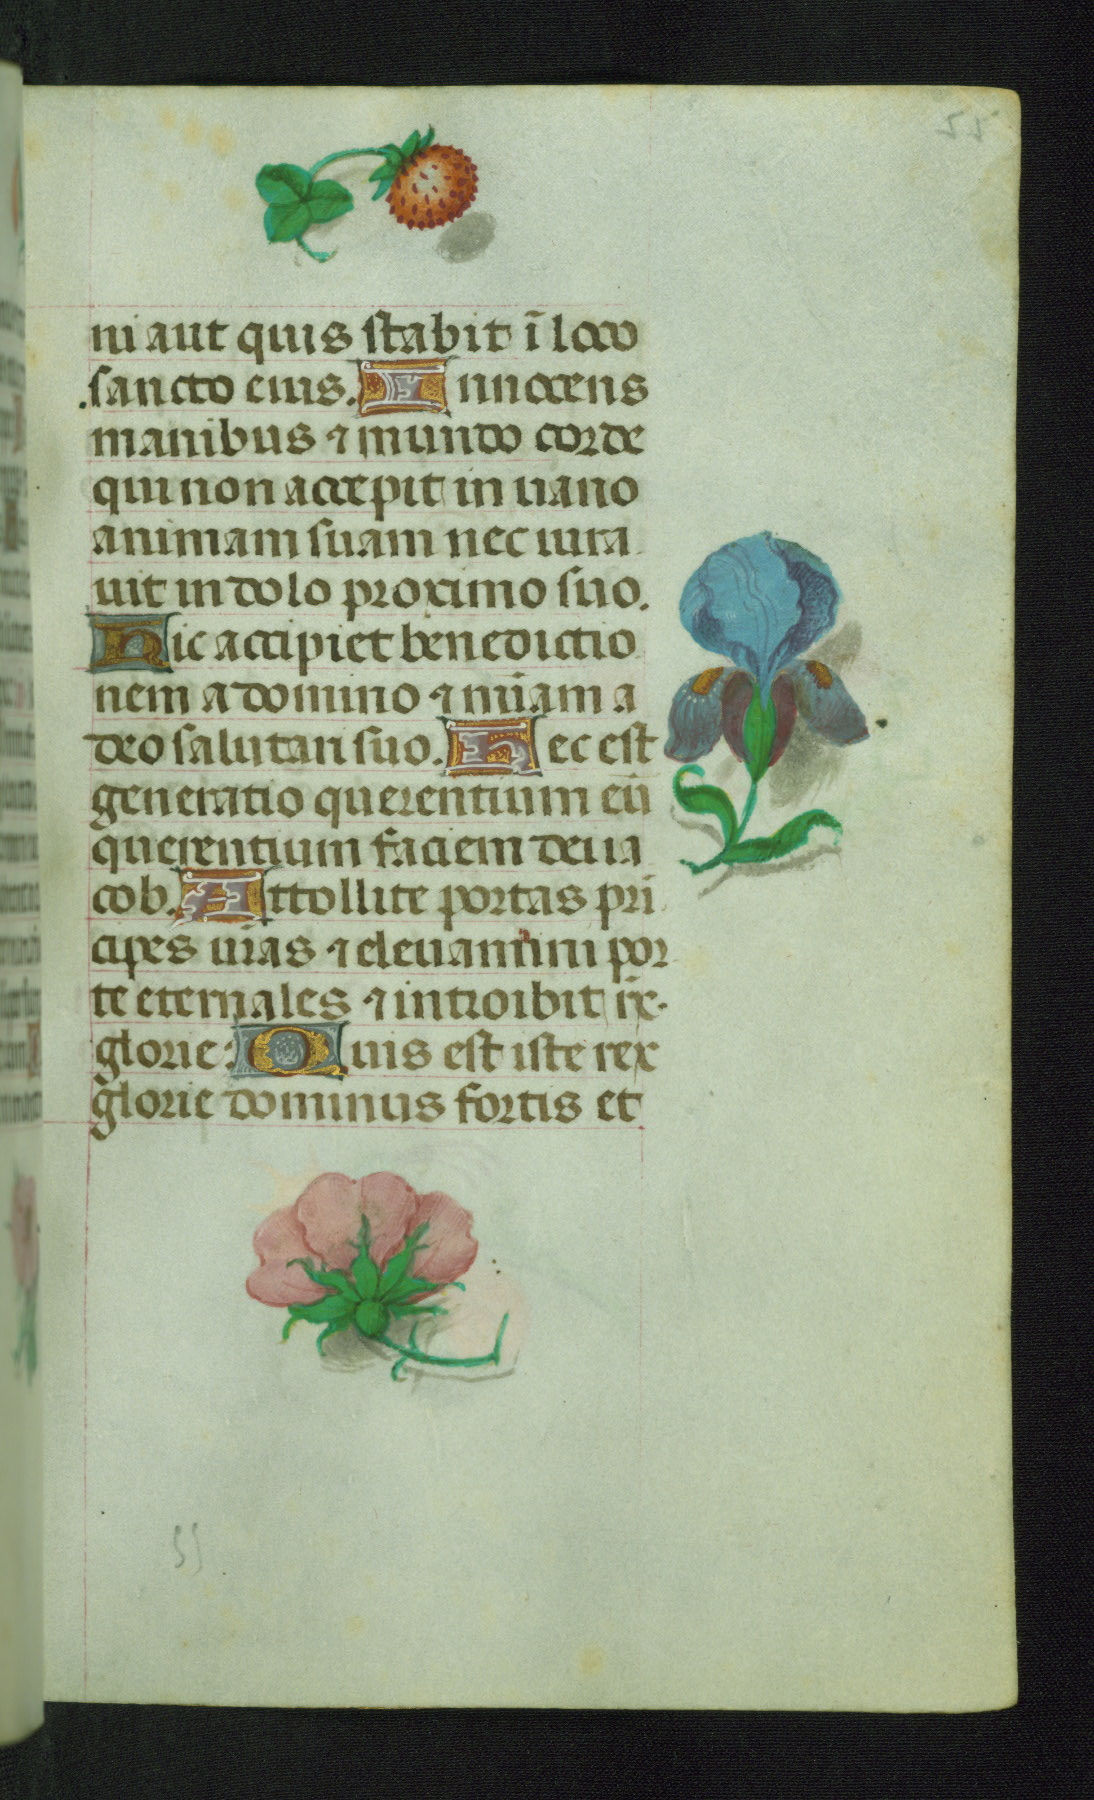 ni aut quis stabit ī loco
sancto eius. Innocens
manibus ⁊ mundo corde
qui non accepit in uano
animam suam nec iura
uit in dolo proximo suo.
Hic accipiet benedictio
nem a domino ⁊ mīam a
deo salutari suo. Hec est
generatio querentium eū
querentium faciem dei ia
cob. Attollite portas pri
cipes uras ⁊ eleuamini por
te eternales ⁊ introibit rex
glorie: Quis est iste rex
glorie dominus fortis et
55